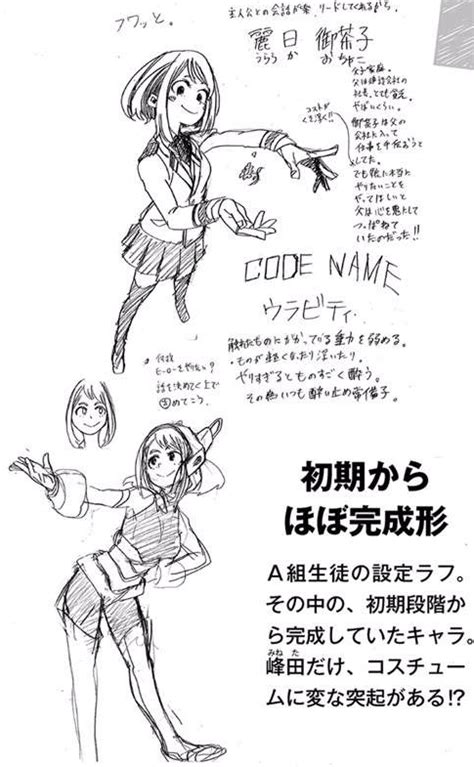 フワッと。
主人公との会話が楽。リードしてくれるから。
麗日 御茶子
うららか おちゃこ
父子家庭。
父は建設会社の
社長。とても貧乏。
やばいくらい。
コストが
くそ浮く!!
御茶子は父の
会社に入って
仕事を手伝おうと
してた。
でも娘に本当に
やりたいことを
やってほしいと
父は心を鬼にして
つっぱねて
いたのだった!!
CODE NAME
ウラビティ
触れたものにかかっている重力を弱める。
・ものが軽くなったり浮いたり。
やりすぎるとものすごく酔う。
その為いつも酔い止め常備。
ヒーローをやりたい?
話を決めてく上で
めてこう。
初期から
ほぼ完成形
A組生徒の設定ラフ。
その中の、初期段階か
ら完成していたキャラ。
みねた
峰田だけ、コスチュー
ムに変な突起がある!?